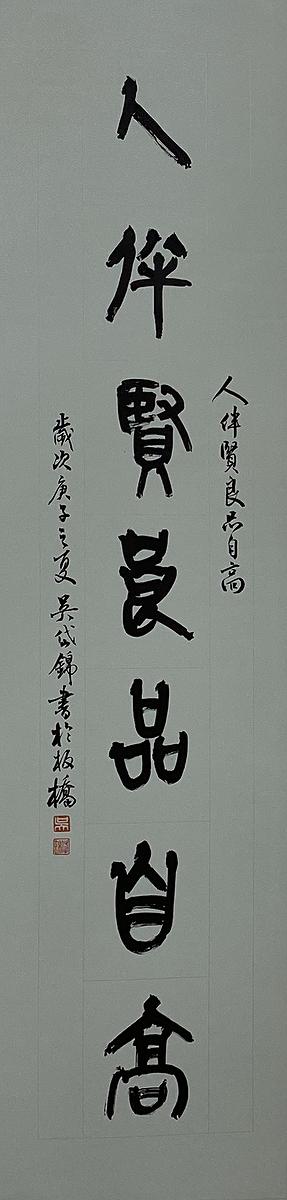 人伴賢良品自高
人伴賢良品自高
歲次庚子之夏 吳岱錦書於板橋
吳